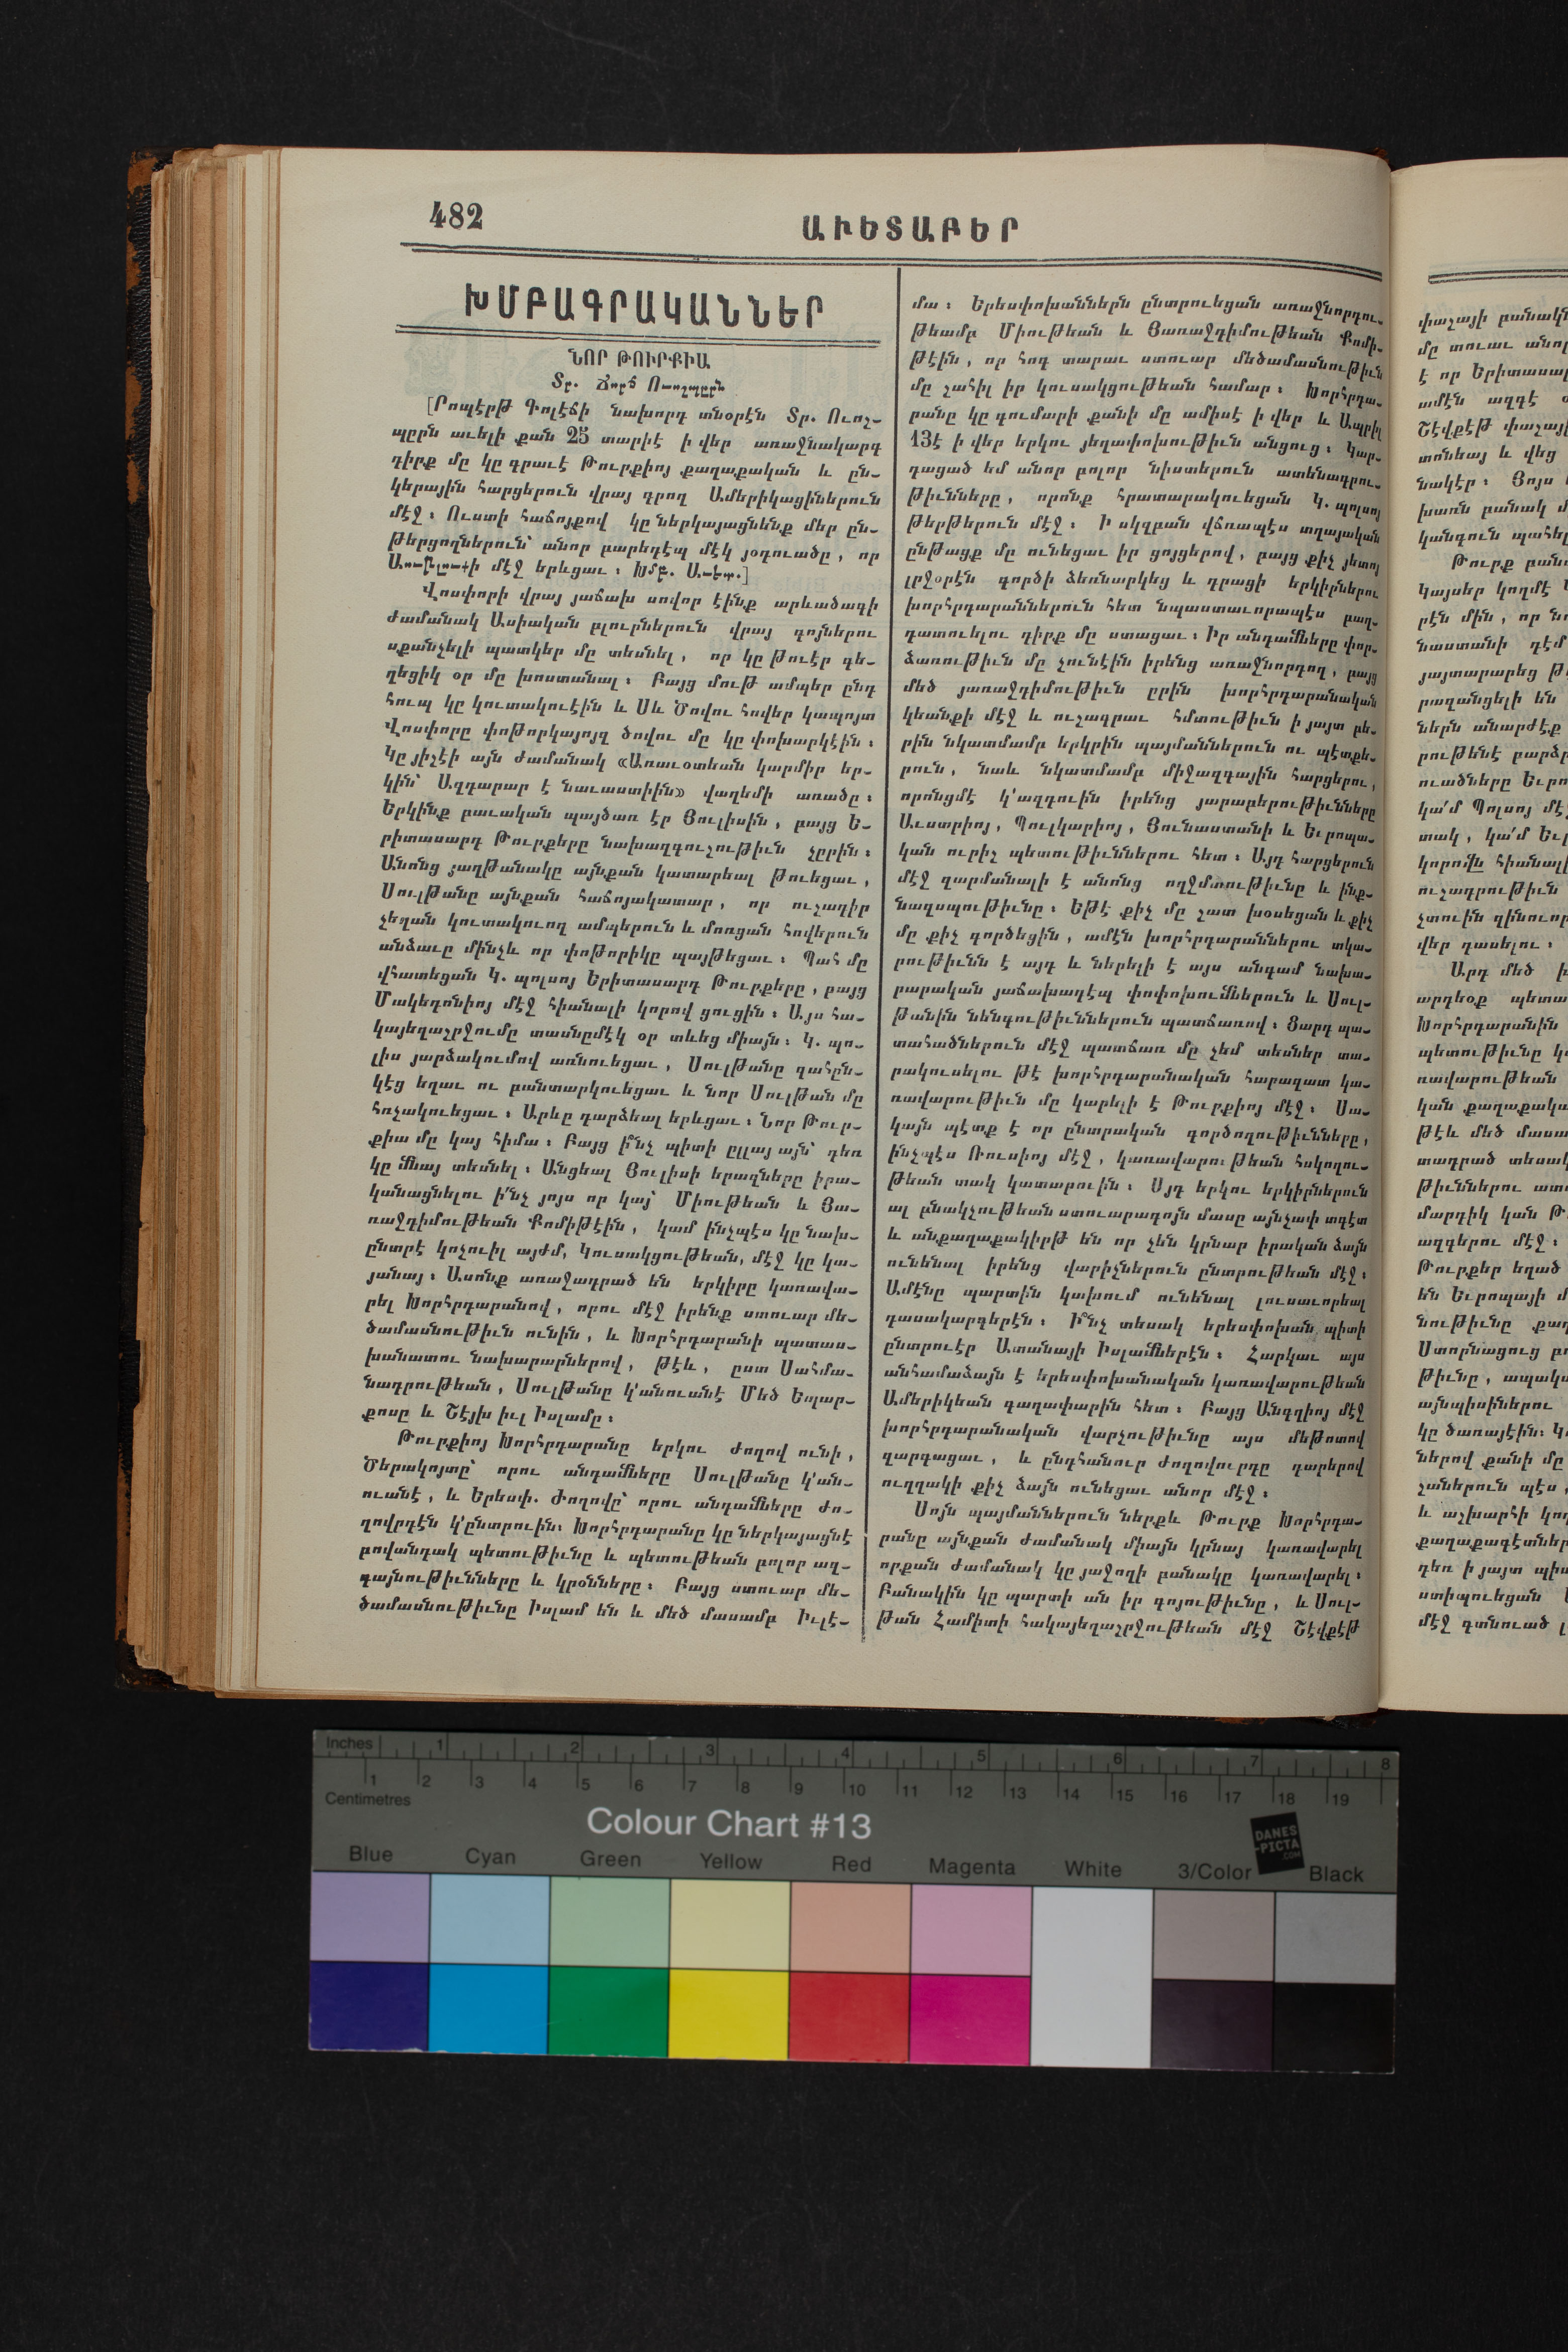 482
ԱՒԵՏԱԲԵՐ
ԽՄԲԱԳՐԱԿԱՆՆԵՐ
ՆՈՐ ԹՈՒՐՔԻԱ
Տր. Ճորճ Ուոշպըրն
[Րոպէրթ Գոլէճի նախորդ տնօրէն Տր. Ուոշ-
պըրն աւելի քան 25 տարիէ ի վեր առաջնակարգ
դիրք մը կը գրաւէ Թուրքիոյ քաղաքական և ըն-
կերային հարցերուն վրայ գրող Ամերիկացիներուն
մէջ։ Ուստի հաճոյքով կը ներկայացնենք մեր ըն-
թերցողներուն՝ անոր բարեդէպ մէկ յօդուածը, որ
Աութլուքի մէջ երևցաւ։ Խմբ. Աւետ.]
Վոսփորի վրայ յաճախ սովոր էինք արևածագի
ժամանակ Ասիական բլուրներուն վրայ գոյներու
սքանչելի պատկեր մը տեսնել, որ կը թուէր գե-
ղեցիկ օր մը խոստանալ։ Բայց մութ ամպեր ընդ
հուպ կը կուտակուէին և Սև Ծովու հովեր կապոյտ
Վոսփորը փոթորկայոյզ ծովու մը կը փոխարկէին։
Կը յիշէի այն ժամանակ «Առաւօտեան կարմիր եր-
կին՝ Ազդարար է նաւաստիին» վաղեմի առածը։
Երկինք բաւական պայծառ էր Յուլիսին, բայց Ե-
րիտասարդ Թուրքերը նախազգուշութիւն չըրին։
Անոնց յաղթանակը այնքան կատարեալ թուեցաւ,
Սուլթանը այնքան հաճոյակատար, որ ուշադիր
չեղան կուտակուող ամպերուն և մոռցան հովերուն
անձաւը մինչև որ փոթորիկը պայթեցաւ։ Պահ մը
վհատեցան Կ. պոլսոյ Երիտասարդ Թուրքերը, բայց
Մակեդոնիոյ մէջ հիանալի կորով ցուցին։ Այս հա-
կայեղաշրջումը տասնըմէկ օր տևեց միայն։ Կ. պո-
լիս յարձակումով առնուեցաւ, Սուլթանը գահըն-
կէց եղաւ ու բանտարկուեցաւ և նոր Սուլթան մը
հռչակուեցաւ։ Արևը դարձեալ երևցաւ։ Նոր Թուր-
քիա մը կայ հիմա։ Բայց ի՞նչ պիտի ըլլայ այն՝ դեռ
կը մնայ տեսնել։ Անցեալ Յուլիսի երազները իրա-
կանացնելու ի՛նչ յոյս որ կայ՝ Միութեան և Յա-
ռաջդիմութեան Քոմիթէին, կամ ինչպէս կը նախ-
ընտրէ կոչուիլ այժմ, Կուսակցութեան, մէջ կը կա-
յանայ։ Ասոնք առաջադրած են երկիրը կառավա-
րել Խորհրդարանով, որու մէջ իրենք ստուար մե-
ծամասնութիւն ունին, և Խորհրդարանի պատաս-
խանատու նախարարներով, թէև, ըստ Սահմա-
նադրութեան, Սուլթանը կ'անուանէ Մեծ Եպար-
քոսը և Շէյխ իւլ Իսլամը։
Թուրքիոյ Խորհրդարանը երկու ժողով ունի,
Ծերակոյտը՝ որու անդամները Սուլթանը կ'ան-
ուանէ, և Երեսփ. Ժողովը՝ որու անդամները ժո-
ղովրդէն կ'ընտրուին։ Խորհրդարանը կը ներկայացնէ
բովանդակ պետութիւնը և պետութեան բոլոր ազ-
գայնութիւնները և կրօնները։ Բայց ստուար մե-
ծամասնութիւնը Իսլամ են և մեծ մասամբ Իւլէ-
մա։ Երեսփոխաններն ընտրուեցան առաջնորդու-
թեամբ Միութեան և Յառաջդիմութեան Քոմի-
թէին, որ հոգ տարաւ ստուար մեծամասնութիւն
մը շահիլ իր կուսակցութեան համար։ Խորհրդա-
րանը կը գումարի քանի մը ամիսէ ի վեր և Ապրիլ
13է ի վեր երկու յեղափոխութիւն անցուց։ Կար-
դացած եմ անոր բոլոր նիստերուն ատենագրու-
թիւնները, որոնք հրատարակուեցան Կ. պոլսոյ
թերթերուն մէջ։ Ի սկզբան վճռապէս տղայական
ընթացք մը ունեցաւ իր ցոյցերով, բայց քիչ յետոյ
լրջօրէն գործի ձեռնարկեց և դրացի երկիրներու
խորհրդարաններուն հետ նպաստաւորապէս բաղ-
դատուելու դիրք մը ստացաւ։ Իր անդամները փոր-
ձառութիւն մը չունէին իրենց առաջնորդող, բայց
մեծ յառաջդիմութիւն ըրին խորհրդարանական
կեանքի մէջ և ուշագրաւ հմտութիւն ի յայտ բե-
րին նկատմամբ երկրին պայմաններուն ու պէտքե-
րուն, նաև նկատմամբ միջազգային հարցերու,
որոնցմէ կ'ազդուին իրենց յարաբերութիւնները
Աւստրիոյ, Պուլկարիոյ, Յունաստանի և Եւրոպա-
կան ուրիշ պետութիւններու հետ։ Այդ հարցերուն
մէջ զարմանալի է անոնց ողջմտութիւնը և ինք-
նազսպութիւնը։ Եթէ քիչ մը շատ խօսեցան և քիչ
մը քիչ գործեցին, ամէն խորհրդարաններու տկա-
րութիւնն է այդ և ներելի է այս անգամ նախա-
րարական յաճախադէպ փոփոխումներուն և Սուլ-
թանին նենգութիւններուն պատճառով։ Ցարդ պա-
տահածներուն մէջ պատճառ մը չեմ տեսներ տա-
րակուսելու թէ խորհրդարանական հարազատ կա-
ռավարութիւն մը կարելի է Թուրքիոյ մէջ։ Սա-
կայն պէտք է որ ընտրական գործողութիւնները,
ինչպէս Ռուսիոյ մէջ, կառավարութեան հսկողու-
թեան տակ կատարուին։ Այդ երկու երկիրներուն
ալ բնակչութեան ստուարագոյն մասը այնչափ տգէտ
և անքաղաքակիրթ են որ չեն կրնար իրական ձայն
ունենալ իրենց վարիչներուն ընտրութեան մէջ։
Ամէնը պարտին կախում ունենալ լուսաւորեալ
դասակարգերէն։ Ի՞նչ տեսակ երեսփոխան պիտի
ընտրուէր Ատանայի Իսլամներէն։ Հարկաւ այս
անհամաձայն է երեսփոխանական կառավարութեան
Ամերիկեան գաղափարին հետ։ Բայց Անգղիոյ մէջ
խորհրդարանական վարչութիւնը այս մեթոտով
զարգացաւ, և ընդհանուր ժողովուրդը դարերով
ուղղակի քիչ ձայն ունեցաւ անոր մէջ։
Սոյն պայմաններուն ներքև Թուրք Խորհրդա-
րանը այնքան ժամանակ միայն կրնայ կառավարել
որքան ժամանակ կը յաջողի բանակը կառավարել։
Բանակին կը պարտի ան իր գոյութիւնը, և Սուլ-
թան Համիտի հակայեղաշրջութեան մէջ Շէվքէթ
Inches 1 2 3 4 5 6 7 8
1 2 3 4 5 6 7 8 9 10 11 12 13 14 15 16 17 18 19
Centimetres
Colour Chart #13
DANES
-PICTA
.COM
Blue Cyan Green Yellow Red Magenta White 3/Color Black